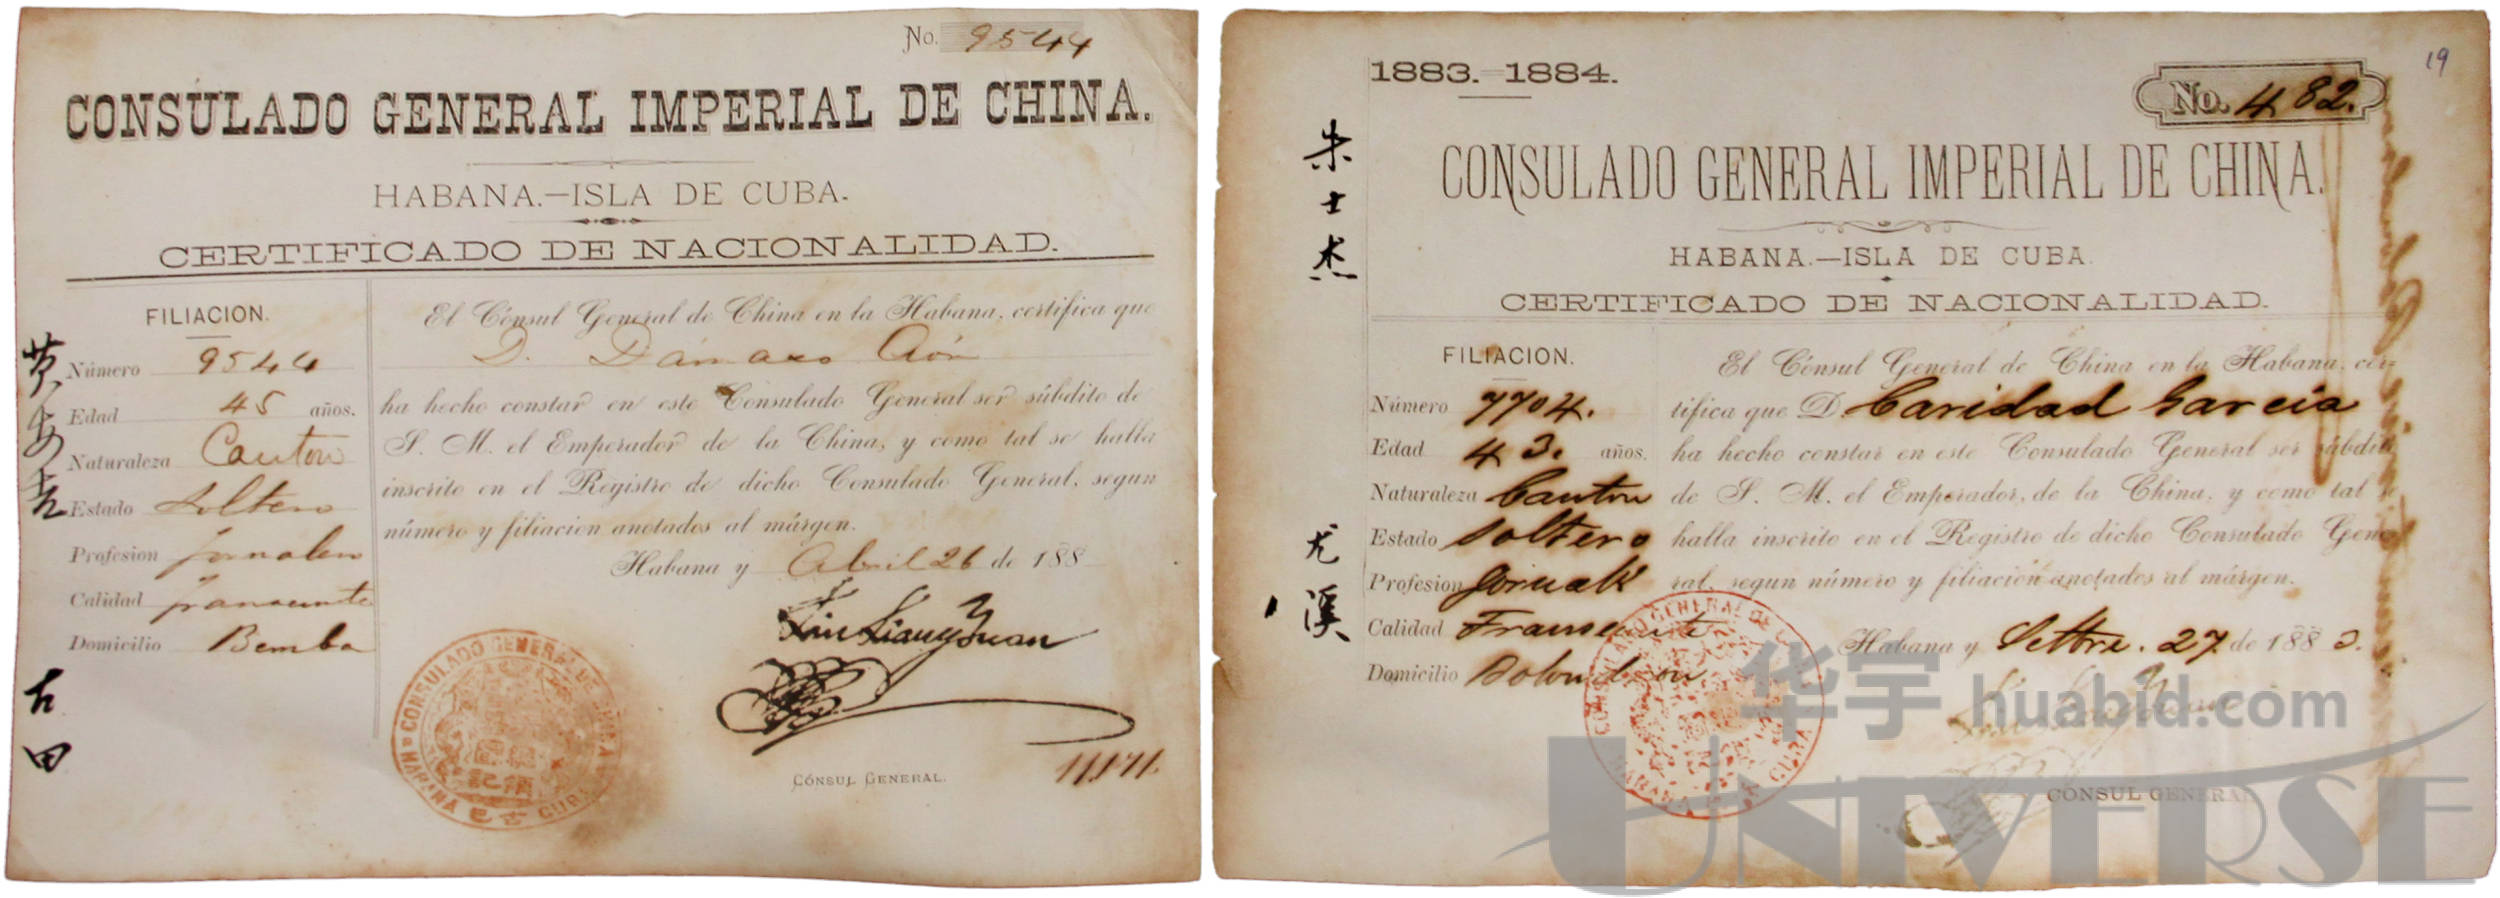 No. 9544
CONSULADO GENERAL IMPERIAL DE CHINA.
HABANA.—ISLA DE CUBA.
CERTIFICADO DE NACIONALIDAD.
FILIACION.
Número 9544
Edad 45 años.
Naturaleza Canton
Estado Soltero
Profesion Jornalero
Calidad Transeunte
Domicilio Bemba
El Cónsul General de China en la Habana, certifica que
D. Dámaso Aón
ha hecho constar en este Consulado General ser súbdito de
S. M. el Emperador de la China, y como tal se halla
inscrito en el Registro de dicho Consulado General, segun
número y filiacion anotados al márgen.
Habana y Abril 26 de 188
Lin Liang Yuan
CÓNSUL GENERAL.
CONSULADO GENERAL DE CHINA
HABANA CUBA
古田
1883.—1884.
19
No. 482.
朱士杰
CONSULADO GENERAL IMPERIAL DE CHINA.
HABANA.—ISLA DE CUBA.
CERTIFICADO DE NACIONALIDAD.
FILIACION.
Número 7704.
Edad 43. años.
Naturaleza Canton
Estado Soltero
Profesion
Calidad Transeunte
Domicilio Bolondron
尤溪
El Cónsul General de China en la Habana, cer-
tifica que D. Caridad Garcia
ha hecho constar en este Consulado General ser súbdito
de S. M. el Emperador, de la China, y como tal se
halla inscrito en el Registro de dicho Consulado Gene-
ral, segun número y filiación anotados al márgen.
Habana y Settre. 27 de 1883.
CÓNSUL GENERAL
CONSULADO GENERAL DE CHINA
HABANA CUBA
华宇 huabid.com
UNIVERSE